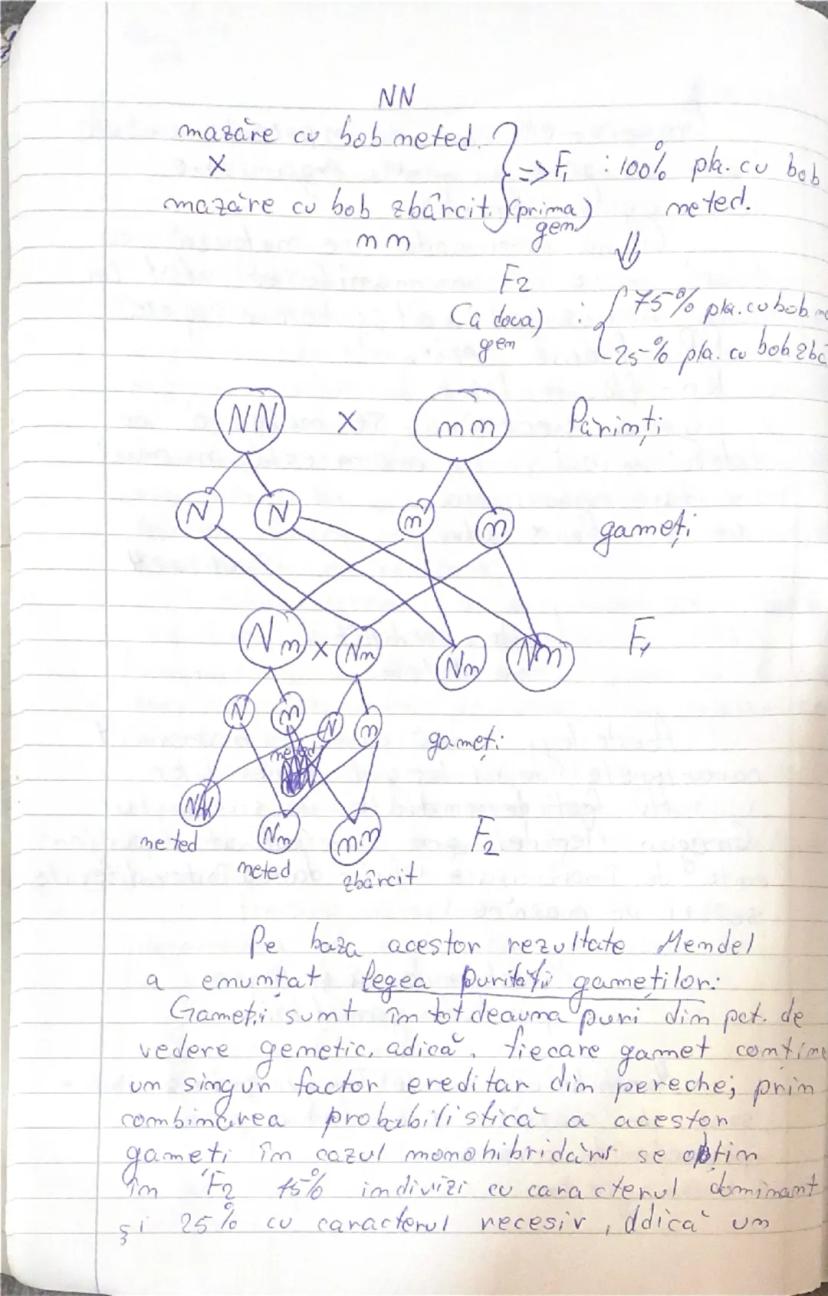 NN
mazăre cu bob neted.
X
mazăre cu bob zbârcit.
nn
=> F1 : 100% pla. cu bob
(prima gen) neted.
F2
(a doua) : 75% pla. cu bob
gen 25% pla. cu bob zbâ
NN X nn Părinți
N N n n gameți
Nn X Nn Nn Nn F1
N n N n gameți
neted
NN Nn nn F2
neted neted zbârcit
Pe baza acestor rezultate Mendel
a enunțat legea purității gameților:
Gameți sunt întotdeauna puri din pct. de
vedere genetic, adică, fiecare gamet contine
un singur factor ereditar din pereche; prin
combinarea probabilistică a acestor
gameti în cazul monohibridării se obtin
în F2 75% indivizi cu caracterul dominant
și 25% cu caracterul recesiv, adică un